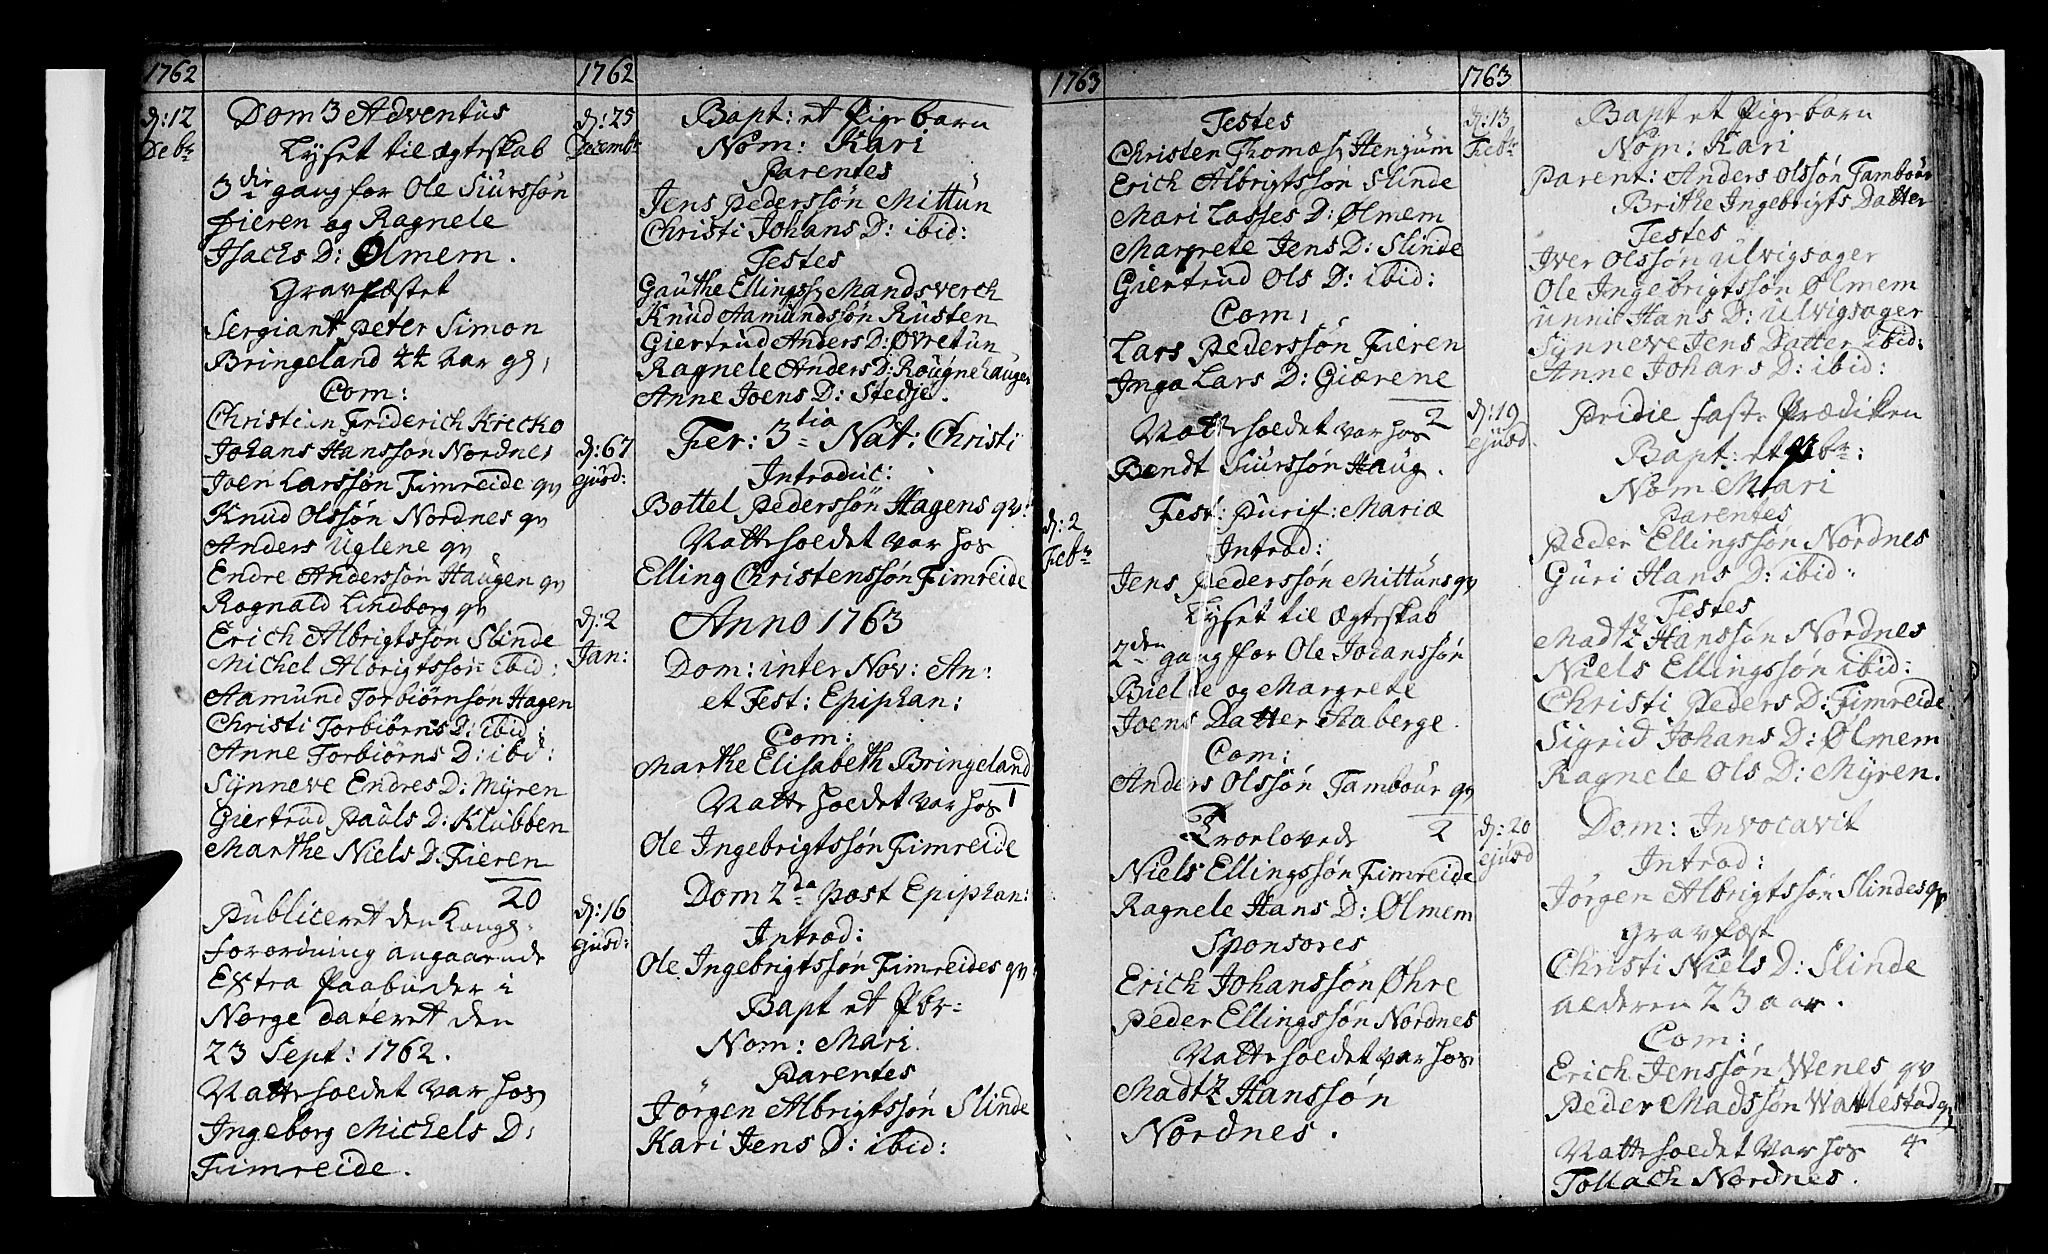 1762
d: 12
Debr
Dom 3 Adventus
Lyset til ægteskab
3die gang for Ole Siurssøn
Fieren og Ragnele
Isachs D: Ølmem.
Gravfæstet
Sergiant Peter Simon
Bringeland 44 Aar gl,
Com:
Christian Friderich Krecko
Johans Hanssøn Nordnes
Joen Larssøn Fimreide qv
Knud Olssøn Nordnes qv
Anders Uglene qv
Endre Anderssøn Haugen qv
Ragnald Lindborg qv
Erich Albrigtssøn Slinde
Michel Albrigtssøn ibid:
Aamund Torbiørnsøn Hagen
Christi Torbiørns D: ibid:
Anne Torbiørns D: ibid:
Synneve Endres D: Myren
Giertrud Pauls D: Klubben
Marthe Niels D. Fieren
20
Publiceret den Kongl.
Forordning angaaende
Extra Paabuder i
Norge dateret den
23 Sept: 1762.
Natteholdet var hos
Ingeborg Michels D:
Fimreide.
1762
d: 25
Decembr
Bapt: et Pigebarn
Nom: Kari
Parentes
Jens Pederssøn Mittun
Christi Johans D: ibid:
Testes
Gauthe Ellingss: Mandsverch
Knud Aamundssøn Rusten
Giertrud Anders D: Øvretun
Ragnele Anders D: Rougnehauger
Anne Joens D: Stedje.
d: 67
ejusd:
Fer: 3tia Nat: Christi
Introduc:
Bottel Pederssøn Hagens qv:
Natteholdet var hos
Elling Christenssøn Fimreide
Anno 1763
d: 2
Jan:
Dom: inter Nov: An:
et Fest: Epiphan:
Com:
Marthe Elisabeth Bringeland
1
Natteholdet var hos
Ole Ingebrigtssøn Fimreide
d: 16
ejusd:
Dom 2da post Epiphan:
Introd:
Ole Ingebrigtssøn Fimreides qv
Bapt et Pbr:
Nom: Mari.
Parentes
Jørgen Albrigtssøn Slinde
Kari Jens D: ibid:
1763
Testes
Christen Thomass: Hengum
Erich Albrigtssøn Slinde
Mari Lasses D: Ølmem
Margrete Jens D: Slinde
Giertrud Ols D: ibid:
Com:
Lars Pederssøn Fieren
Inga Lars D: Giærene
2
Natteholdet var hos
Bendt Siurssøn Haug.
d: 2
Febr
Fest: Purif: Mariæ
Introd:
Jens Pederssøn Mittuns qv
Lyset til ægteskab
2den gang for Ole Johanssøn
Bielde og Margrete
Joens Datter Aaberge.
Com:
Anders Olssøn Tambour qv
2
Trorlovede
Niels Ellingssøn Fimreide
Ragnele Hans D: Ølmem
Sponsores
Erich Johanssøn Øhre
Peder Ellingssøn Nordnes
Natteholdet var hos
Madtz Hanssøn
Nordnes.
1763
d: 13
Febr
Bapt et Pigebarn
Nom: Kari
Parent: Anders Olssøn Tambour
Brithe Ingebrigts Datter
Testes
Iver Olssøn Ulvigsager
Ole Ingebrigtssøn Ølmem
Unni Hans D: Ulvigsager
Synneve Jens Datter ibid:
Anne Johans D: ibid:
d: 19
ejusd.
Pridie fast: Prædiken
Bapt: et Pbr:
Nom Mari
Parentes
Peder Ellingssøn Nordnes
Guri Hans D: ibid:
Testes
Madtz Hanssøn Nordnes
Niels Ellingssøn ibid:
Christi Peders D: Fimreide
Sigrid Johans D: Ølmem
Ragnele Ols D: Myren.
d: 20
ejusd
Dom: Invocavit
Introd:
Jørgen Albrigtssøn Slindes qv
Gravfæst
Christi Niels D: Slinde
alderen 23 aar.
Com:
Erich Jenssøn Wenes qv
Peder Madssøn Wallestad qv
4
Natteholdet var hos
Tollach Nordnes.